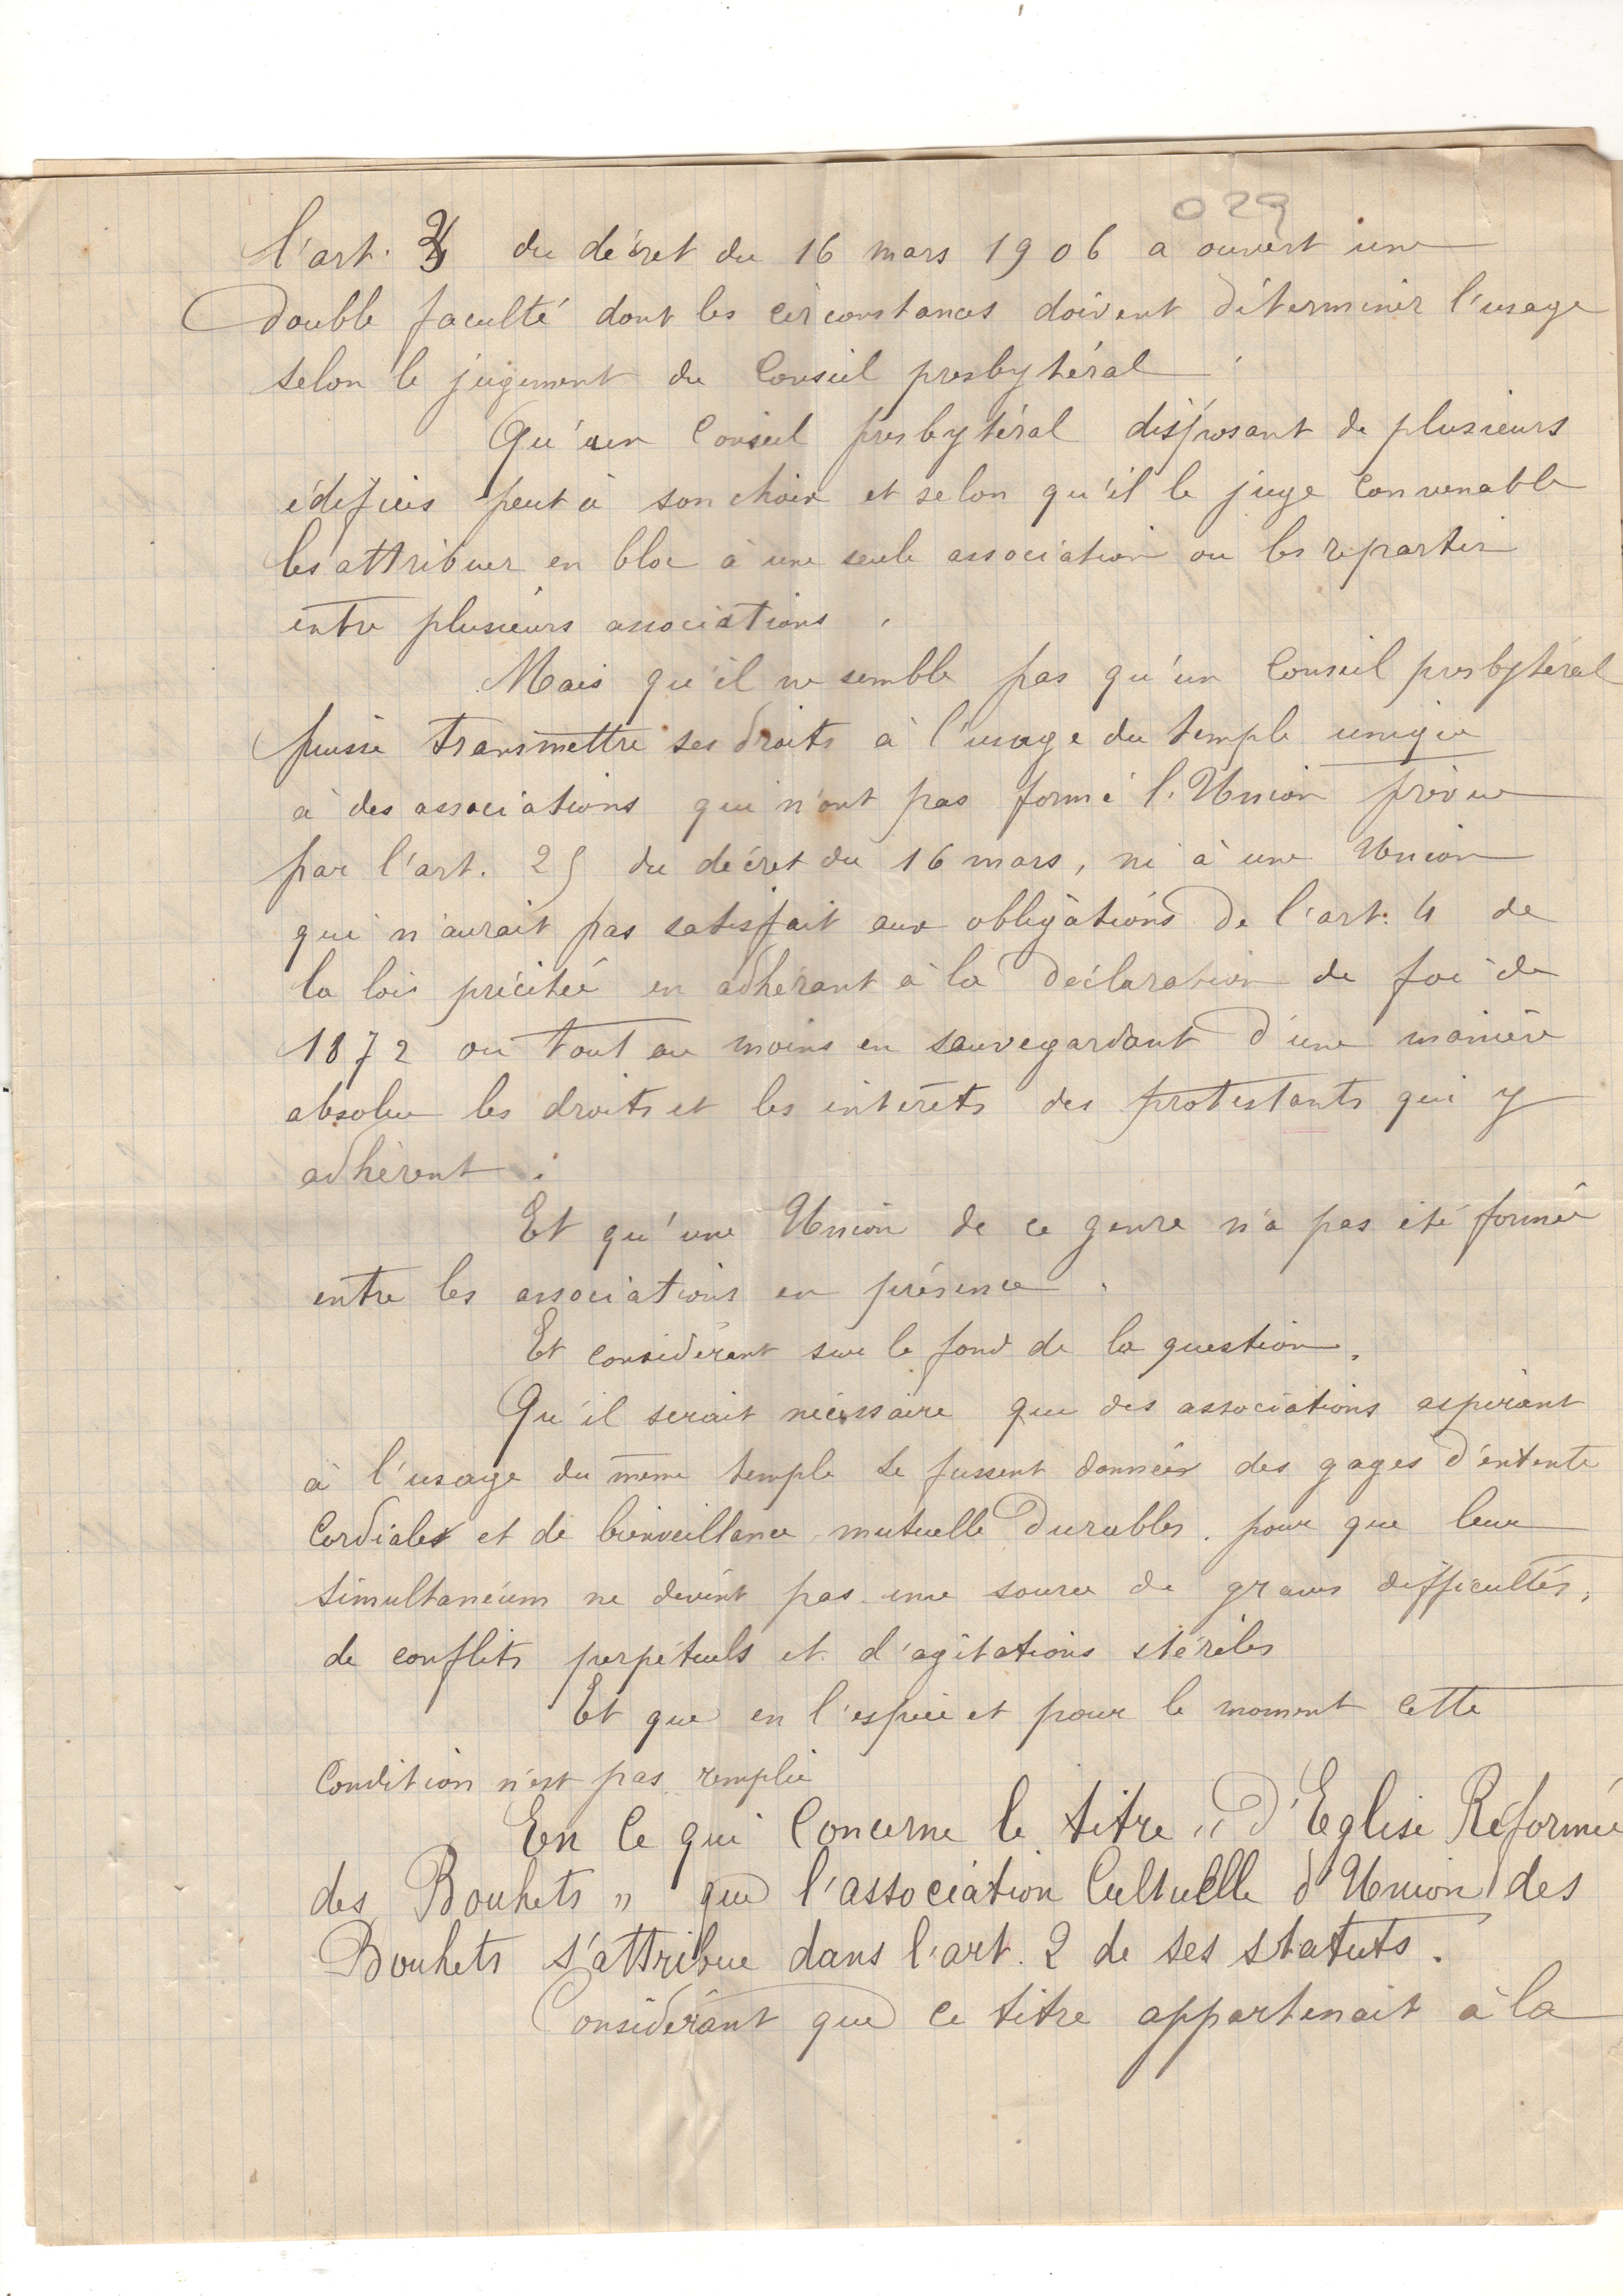 029
l'art. 4 du décret du 16 mars 1906 a ouvert une
double faculté dont les circonstances doivent déterminer l'usage
selon le jugement du Conseil presbytéral.
Qu'un Conseil presbytéral disposant de plusieurs
édifices peut à son choix et selon qu'il le juge convenable
les attribuer en bloc à une seule association ou les repartir
entre plusieurs associations,
Mais qu'il ne semble pas qu'un Conseil presbytéral
puisse transmettre ses droits à l'usage du temple unique
à des associations qui n'ont pas formé l'Union prévue
par l'art. 25 du décret du 16 mars, ni à une Union
qui n'aurait pas satisfait aux obligations de l'art. 4 de
la loi précitée en adhérant à la déclaration de foi de
1872 ou tout au moins en sauvegardant d'une manière
absolue les droits et les intérêts des protestants qui y
adhèrent;
Et qu'une Union de ce genre n'a pas été formée
entre les associations en présence.
Et considérant sur le fond de la question,
Qu'il serait nécessaire que des associations aspirant
à l'usage du même temple se fussent données des gages d'entente
Cordiale et de bienveillance mutuelle durables. pour que leur
simultanéum ne devint pas une source de graves difficultés,
de conflits perpétuels et d'agitations stériles
Et que en l'espèce et pour le moment cette
Condition n'est pas remplie
En Ce qui Concerne le titre " d'Eglise Réformée
des Bouhets " que l'association Cultuelle d'Union des
Bouhets s'attribue dans l'art. 2 de ses statuts.
Considérant que ce titre appartenait à la